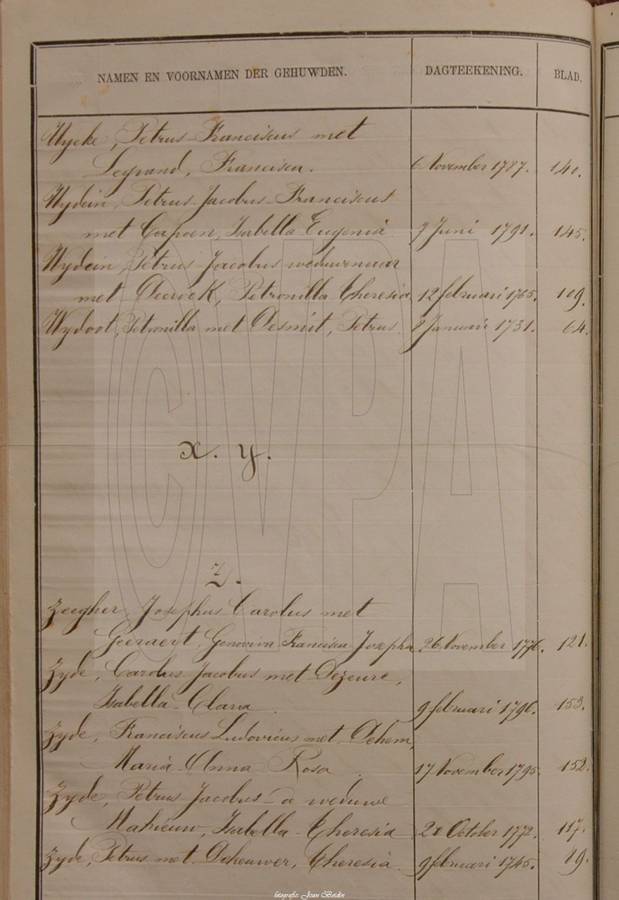 NAMEN EN VOORNAMEN DER GEHUWDEN. DAGTEEKENING. BLAD.
Wycke, Petrus-Franciscus met
Legrand, Francisca. 6 November 1787. 140.
Wydein, Petrus-Jacobus-Franciscus
met Capoen, Isabella Eugenia 7 Juni 1791. 145.
Wydein, Petrus Jacobus weduwenaar
met Deswek, Petronilla Theresia 12 februari 1765. 109.
Wydoot, Petronilla met Desmit, Petrus. 8 Januari 1731. 64.
CVPA
x. y.
Z.
Zeegher, Josephus Carolus met
Geeraert, Genoveva Francisca Josepha. 26 November 1776. 121.
Zyde, Carolus Jacobus met Dezeure,
Isabella-Clara. 9 februari 1796. 153.
Zyde, Franciscus Ludovicus met Dehem,
Maria-Anna Rosa. 17 November 1795. 152.
Zyde, Petrus Jacobus-a weduwe
Mahieuw, Isabella-Theresia 20 October 1772. 117.
Zyde, Petrus met Deheuwer, Theresia. 9 februari 1745. 19.
fotografie: Joan Beiden